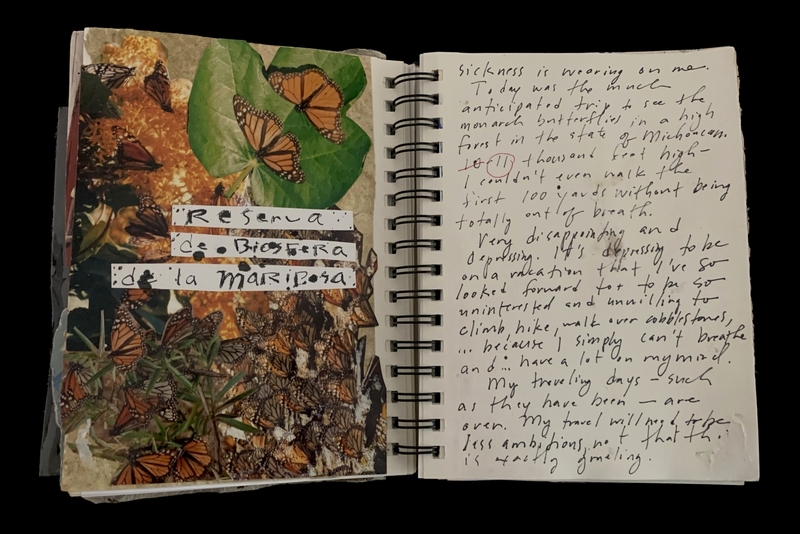 Reserva
de BiosFera
de la MARiposa
sickness is wearing on me.
Today was the much
anticipated trip to see the
monarch butterflies in a high
forest in the state of Michoacan.
10 11 thousand feet high—
I couldn't even walk the
first 100 yards without being
totally out of breath.
Very disappointing and
depressing. It's depressing to be
on a vacation that I've so
looked forward to + to be so
uninterested and unwilling to
climb, hike, walk over cobblestones,
... because I simply can't breathe
and... have a lot on my mind.
My traveling days – such
as they have been – are
over. My travel will need to be
less ambitious, not that this
is exactly grueling.